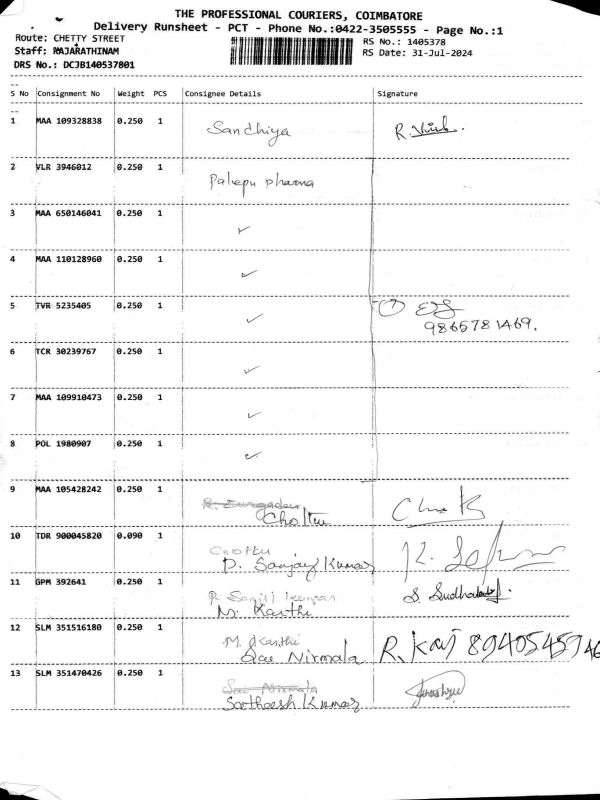 THE PROFESSIONAL COURIERS, COIMBATORE
Delivery Runsheet - PCT - Phone No.:0422-3505555 - Page No.:1
Route: CHETTY STREET RS No.: 1405378
Staff: RAJARATHINAM RS Date: 31-Jul-2024
DRS No.: DCJB140537801
--
S No Consignment No Weight PCS Consignee Details Signature
--
1 MAA 109328838 0.250 1 Sandhiya R.
2 VLR 3946012 0.250 1 Palepu pharma
3 MAA 650146041 0.250 1 ✓
4 MAA 110128960 0.250 1 ✓
5 TVR 5235405 0.250 1 ✓ 7
9865781469.
6 TCR 30239767 0.250 1 ✓
7 MAA 109910473 0.250 1 ✓
8 POL 1980907 0.250 1 ✓
9 MAA 105428242 0.250 1
Choltu
10 TDR 900045820 0.090 1 Choltu
D. Sanjay Kumar
11 GPM 392641 0.250 1
M. Karthi
12 SLM 351516180 0.250 1 M. Karthi
Sai Nirmala R. Kavi 8940545946
13 SLM 351470426 0.250 1 Sai Nirmala
Satheesh Kumar